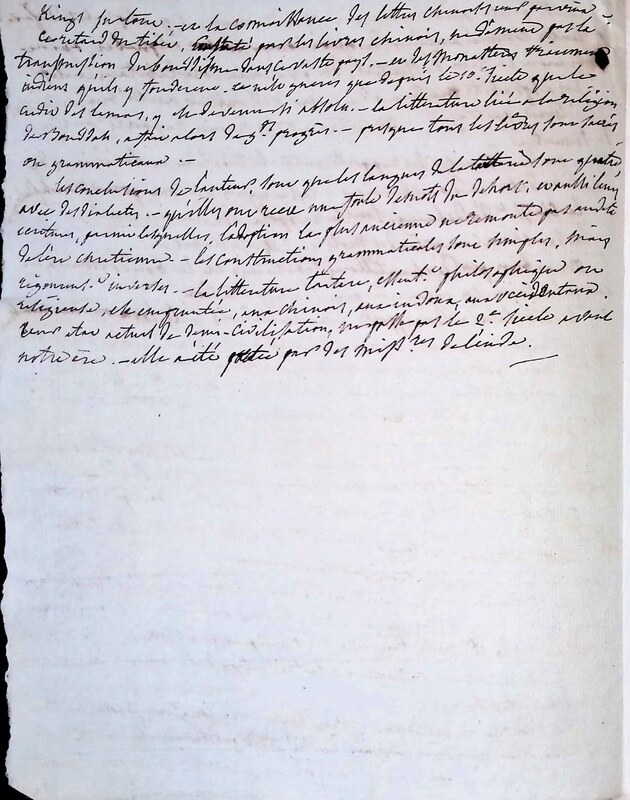 Kings surtout. — et la connaissance des lettres chinoises leur parvint.
ce retard du tibet, constaté par les livres chinois, ne dément pas la
transmission du bouddhisme dans ce vaste pays. — et les monastères
indiens qu'ils y fondèrent. ce n'est guères que depuis le 10.e siècle que le
crédit des lamas, y est devenu si absolu. — la littérature liée à la religion
de Bouddah, a fait alors de g.ds progrès. — presque tous les livres sont sacrés
ou grammaticaux. —
les conclusions de l'auteur sont que les langues de la tatarie sont quatre
avec des dialectes. — qu'elles ont reçu une foule de mots du dehors, et
certaines, parmi lesquelles, l'adoption la plus ancienne ne remonte pas au delà
de l'ère chretienne. — les constructions grammaticales sont simples, mais
rigoureus.t inverses. — la littérature tartare, essent.t philosophique ou
religieuse, est empruntée, aux chinois, aux indous, aux occidentaux.
leur état actuel de demi-civilisation, ne passe pas le 2.e siècle avant
notre ère. — elle a été portée par des miss.res de l'inde.